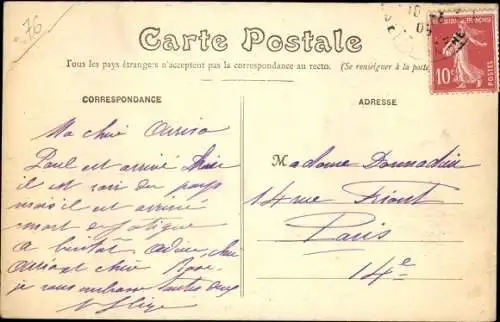 76
Carte Postale
Tous les pays étrangers n'acceptent pas la correspondance au recto. (Se renseigner à la poste
CORRESPONDANCE
ADRESSE
REPUBLIQUE FRANÇAISE
10c
POSTES
Ma chère
Paul est arrivé
il est ravi du pays
mais il est arrivé
mort de fatigue
à bientôt adieu, chère
et chère Rose
je vous embrasse toutes deux
Madame Donnadieu
14 rue Friant
Paris
14e